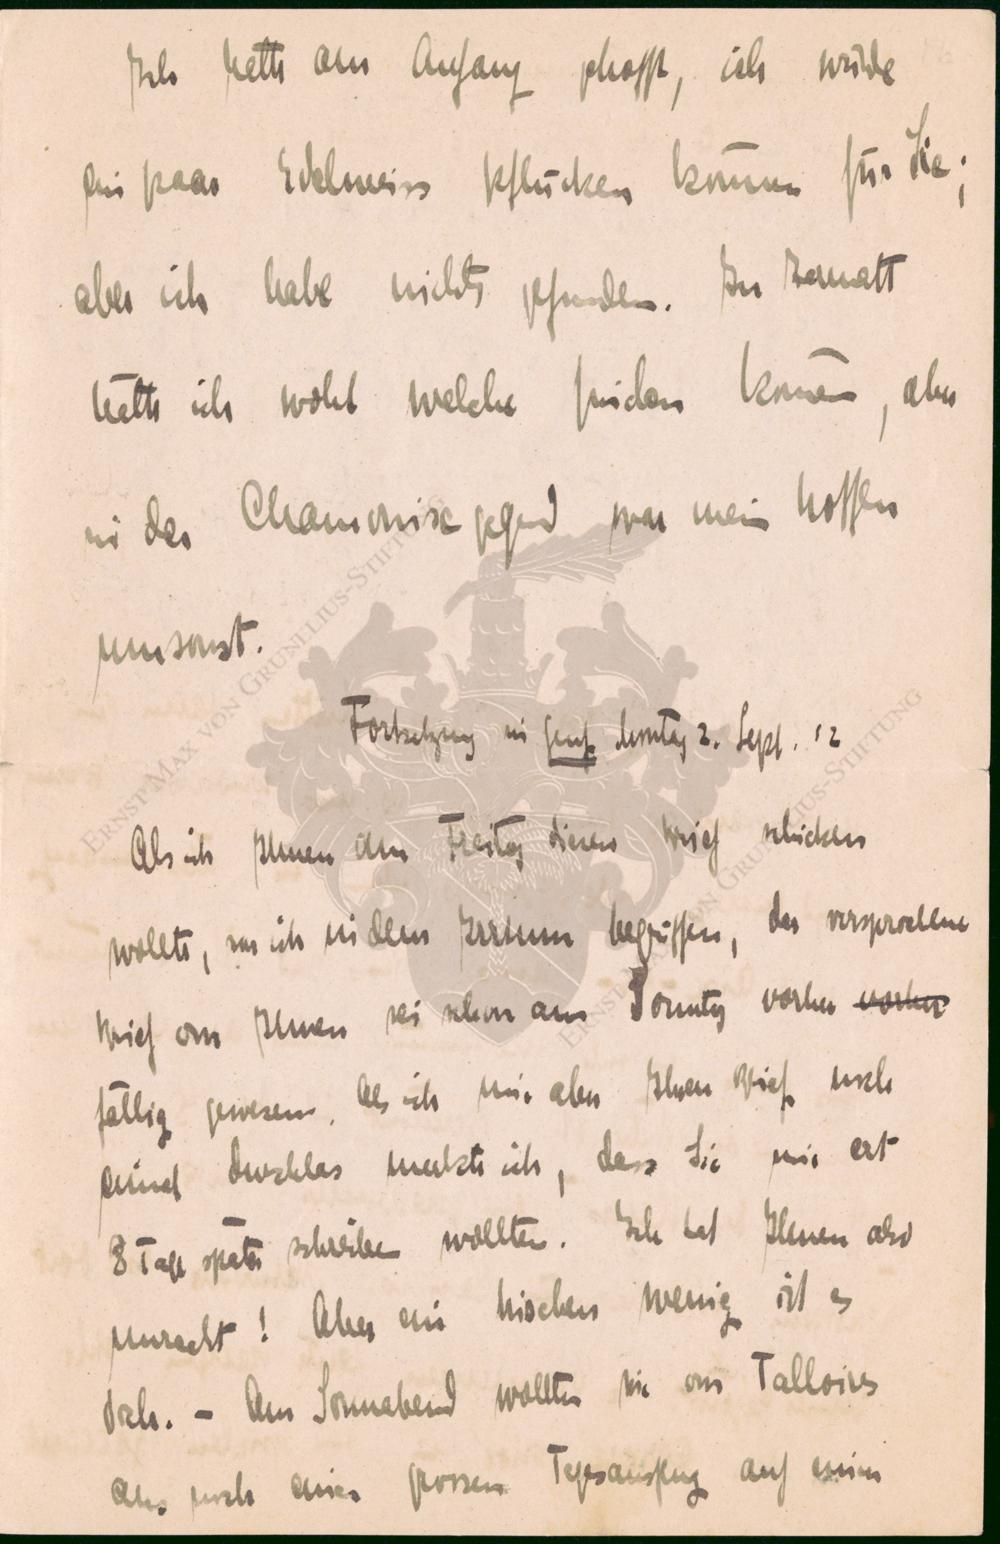 Ich hatte am Anfang gehofft, ich würde
ein paar Edelweiss pflücken können für Sie;
aber ich habe nichts gefunden. In Zermatt
hätte ich wohl welche finden können, aber
in der Chamonixgegend war mein Hoffen
umsonst.
Fortsetzung in Genf. Montag 2. Sept. 12
Als ich Ihnen am Freitag diesen Brief schicken
wollte, war ich in dem Irrtum begriffen, der versprochene
Brief von Ihnen sei schon am Sonntag vorher vorher
fällig gewesen. Als ich mir aber Ihren Brief noch
einmal durchlas merkte ich, dass Sie mir erst
8 Tage später schreiben wollten. Ich tat Ihnen also
unrecht! Aber ein bischen wenig ist es
doch. – Am Sonnabend wollten wir von Talloires
aus noch einen grossen Tagesausflug auf einen
ERNST MAX VON GRUNELIUS-STIFTUNG
ERNST MAX VON GRUNELIUS-STIFTUNG